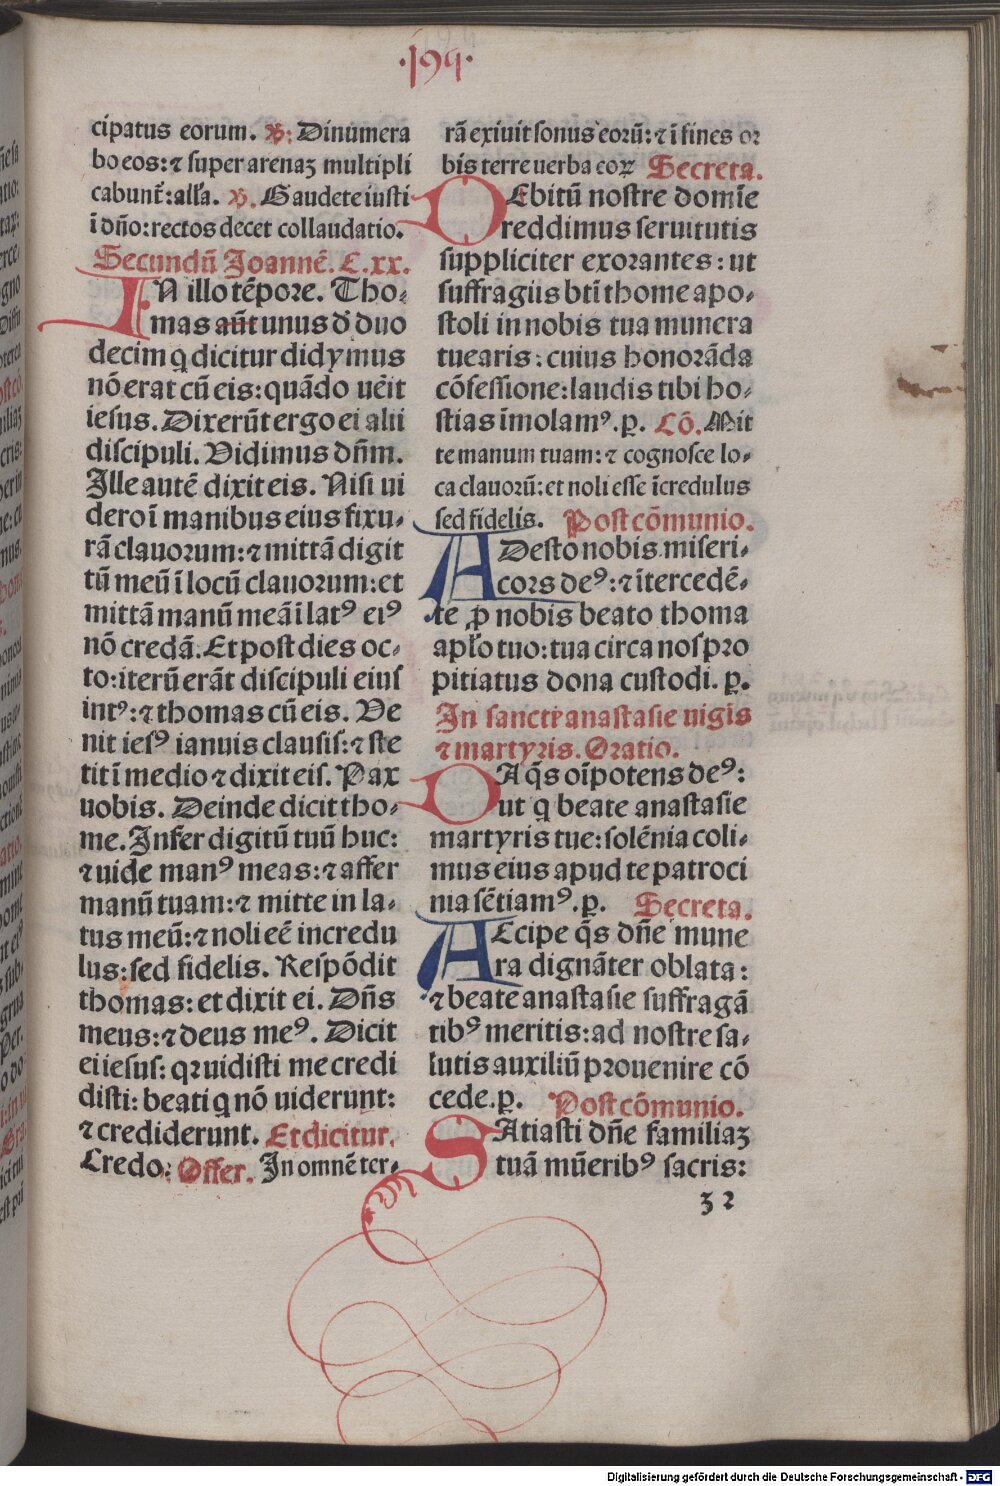 ·194·
cipatus eorum. ℣: Dinumera
bo eos: ⁊ super arenaʒ multipli
cabunt᷑: all'a. ℣. Gaudete iusti
ī dño: rectos decet collaudatio.
Secundū Joannē. C. xx.
IN illo tēpore. Tho-
mas aūt unus d̄ duo
decim q̄ dicitur didymus
nō erat cū eis: quādo uēit
iesus. Dixerūt ergo ei alii
discipuli. Vidimus dñm.
Ille autē dixit eis. Nisi ui
dero ī manibus eius fixu-
rā clauorum: ⁊ mittā digit
tū meū ī locū clauorum: et
mittā manū meā ī latꝰ eiꝰ
nō credā. Et post dies oc-
to: iterū erāt discipuli eius
intꝰ: ⁊ thomas cū eis. Ve
nit iesꝰ ianuis clausis: ⁊ ste
tit ī medio ⁊ dixit eis. Pax
uobis. Deinde dicit tho-
me. Infer digitū tuū huc:
⁊ uide manꝰ meas: ⁊ affer
manū tuam: ⁊ mitte in la-
tus meū: ⁊ noli eē incredu
lus: sed fidelis. Respōdit
thomas: et dixit ei. Dñs
meus: ⁊ deus meꝰ. Dicit
ei iesus: qꝛ uidisti me credi
disti: beati q̄ nō uiderunt:
⁊ crediderunt. Et dicitur.
Credo: Offer. In omnē ter-
rā exiuit sonus eorū: ⁊ ī fines or
bis terre uerba eoꝝ Secreta.
DEbitū nostre domīe
reddimus seruitutis
suppliciter exorantes: ut
suffragiis btī thome apo-
stoli in nobis tua munera
tuearis: cuius honorāda
cōfessione: laudis tibi ho-
stias īmolamꝰ. p. Cō. Mit
te manum tuam: ⁊ cognosce lo-
ca clauorū: et noli esse īcredulus
sed fidelis. Post cōmunio.
ADesto nobis miseri-
cors deꝰ: ⁊ ītercedē-
te ꝓ nobis beato thoma
apl'o tuo: tua circa nos pro
pitiatus dona custodi. p.
In sancte anastasie uigīs
⁊ martyris. Oratio.
DA q̄s oīpotens deꝰ:
ut q̄ beate anastasie
martyris tue: solēnia coli-
mus eius apud te patroci
nia sētiamꝰ. p. Secreta.
ACcipe q̄s dñe mune
ra dignāter oblata:
⁊ beate anastasie suffragā
tibꝰ meritis: ad nostre sa-
lutis auxiliū prouenire cō
cede. p. Post cōmunio.
SAtiasti dñe familiaʒ
tuā mūeribꝰ sacris:
z 2
Digitalisierung gefördert durch die Deutsche Forschungsgemeinschaft - DFG